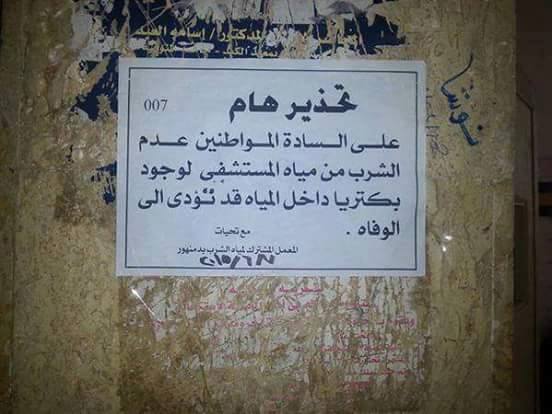 الدكتور / إسامه
تحذير هام
007
على السادة المواطنين عدم
الشرب من مياه المستشفى لوجود
بكتريا داخل المياه قد تؤدى الى
الوفاه .
مع تحيات
المعمل المشترك لمياه الشرب بدمنهور